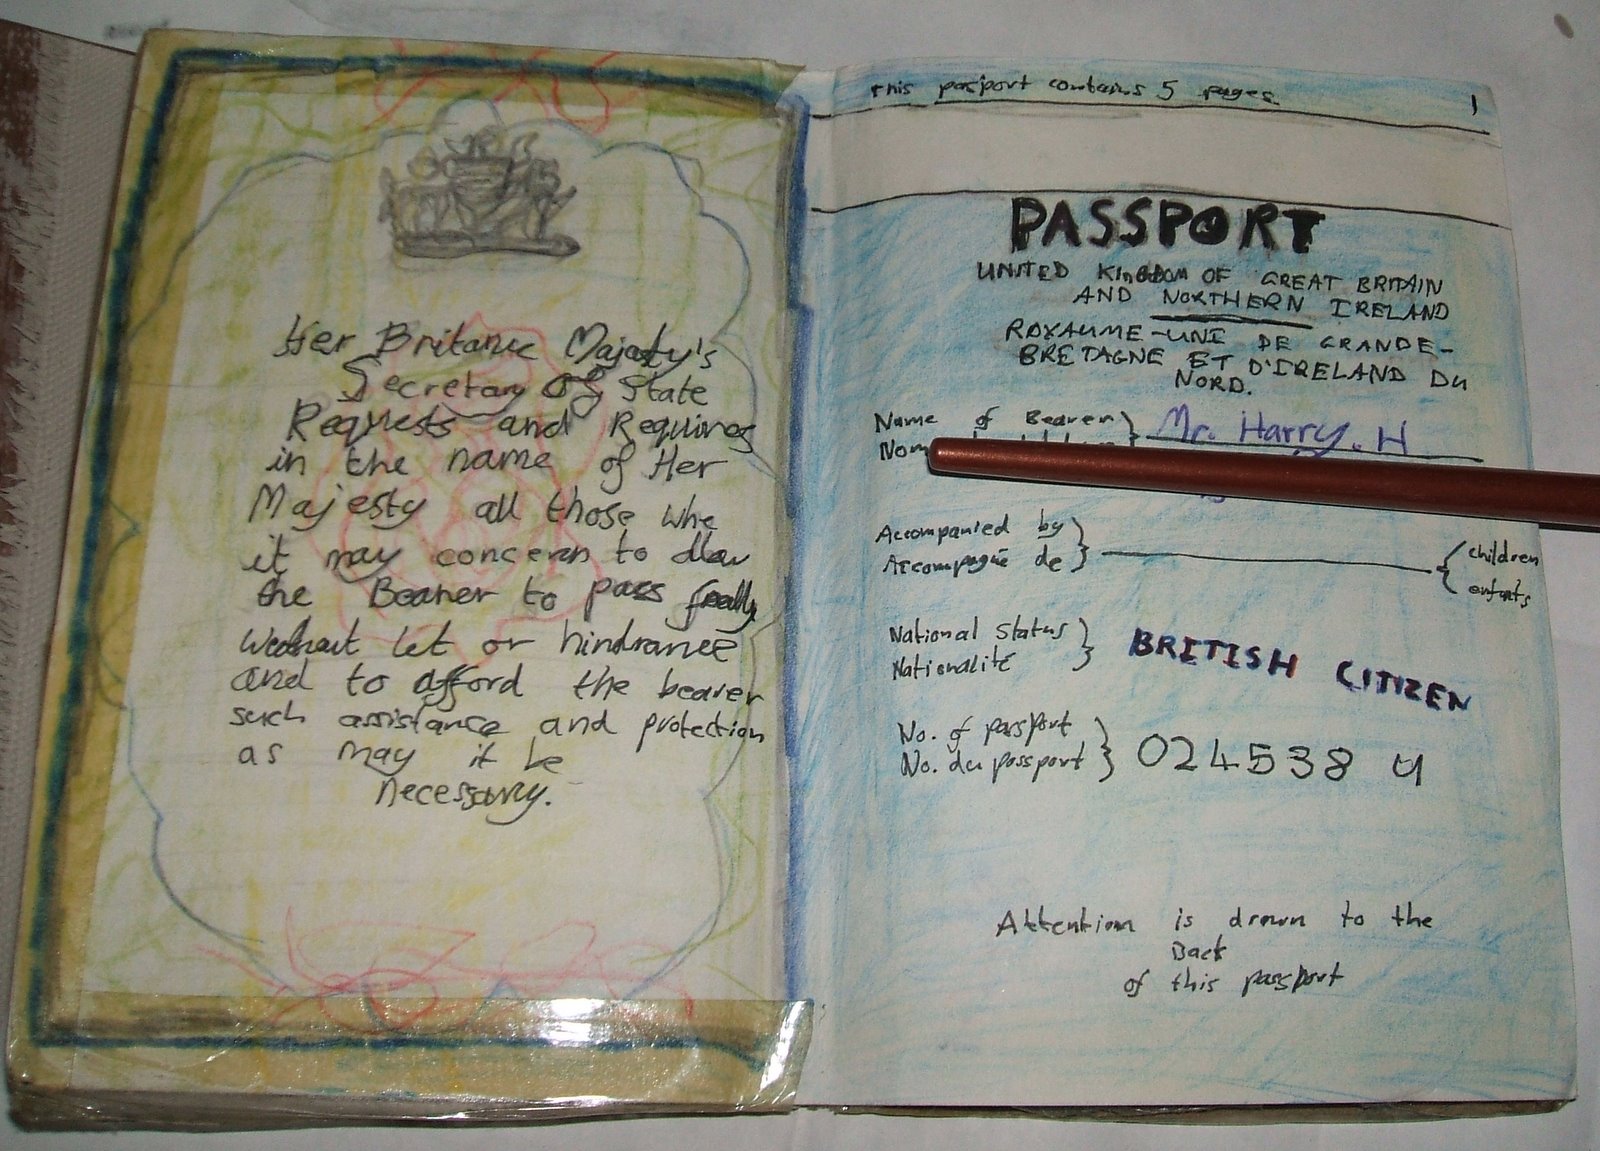 Her Britanic Majesty's
Secretary Of State
Requests and Requires
in the name of Her
Majesty all those who
it may concern to allow
the Bearer to pass freely
without let or hindrance
and to afford the bearer
such assistance and protection
as may it be
necessary.
This passport contains 5 pages
1
PASSPORT
UNITED KINGDOM OF GREAT BRITAIN
AND NORTHERN IRELAND
ROYAUME-UNI DE GRANDE-
BRETAGNE ET D'IRELAND DU
NORD.
Name of Bearer
Mr. Harry. H
Accompanied by
Accompagné de
children
enfants
National Status
Nationalité
BRITISH CITIZEN
No. of passport
No. du passport
024538 U
Attention is drawn to the
Back
of this passport